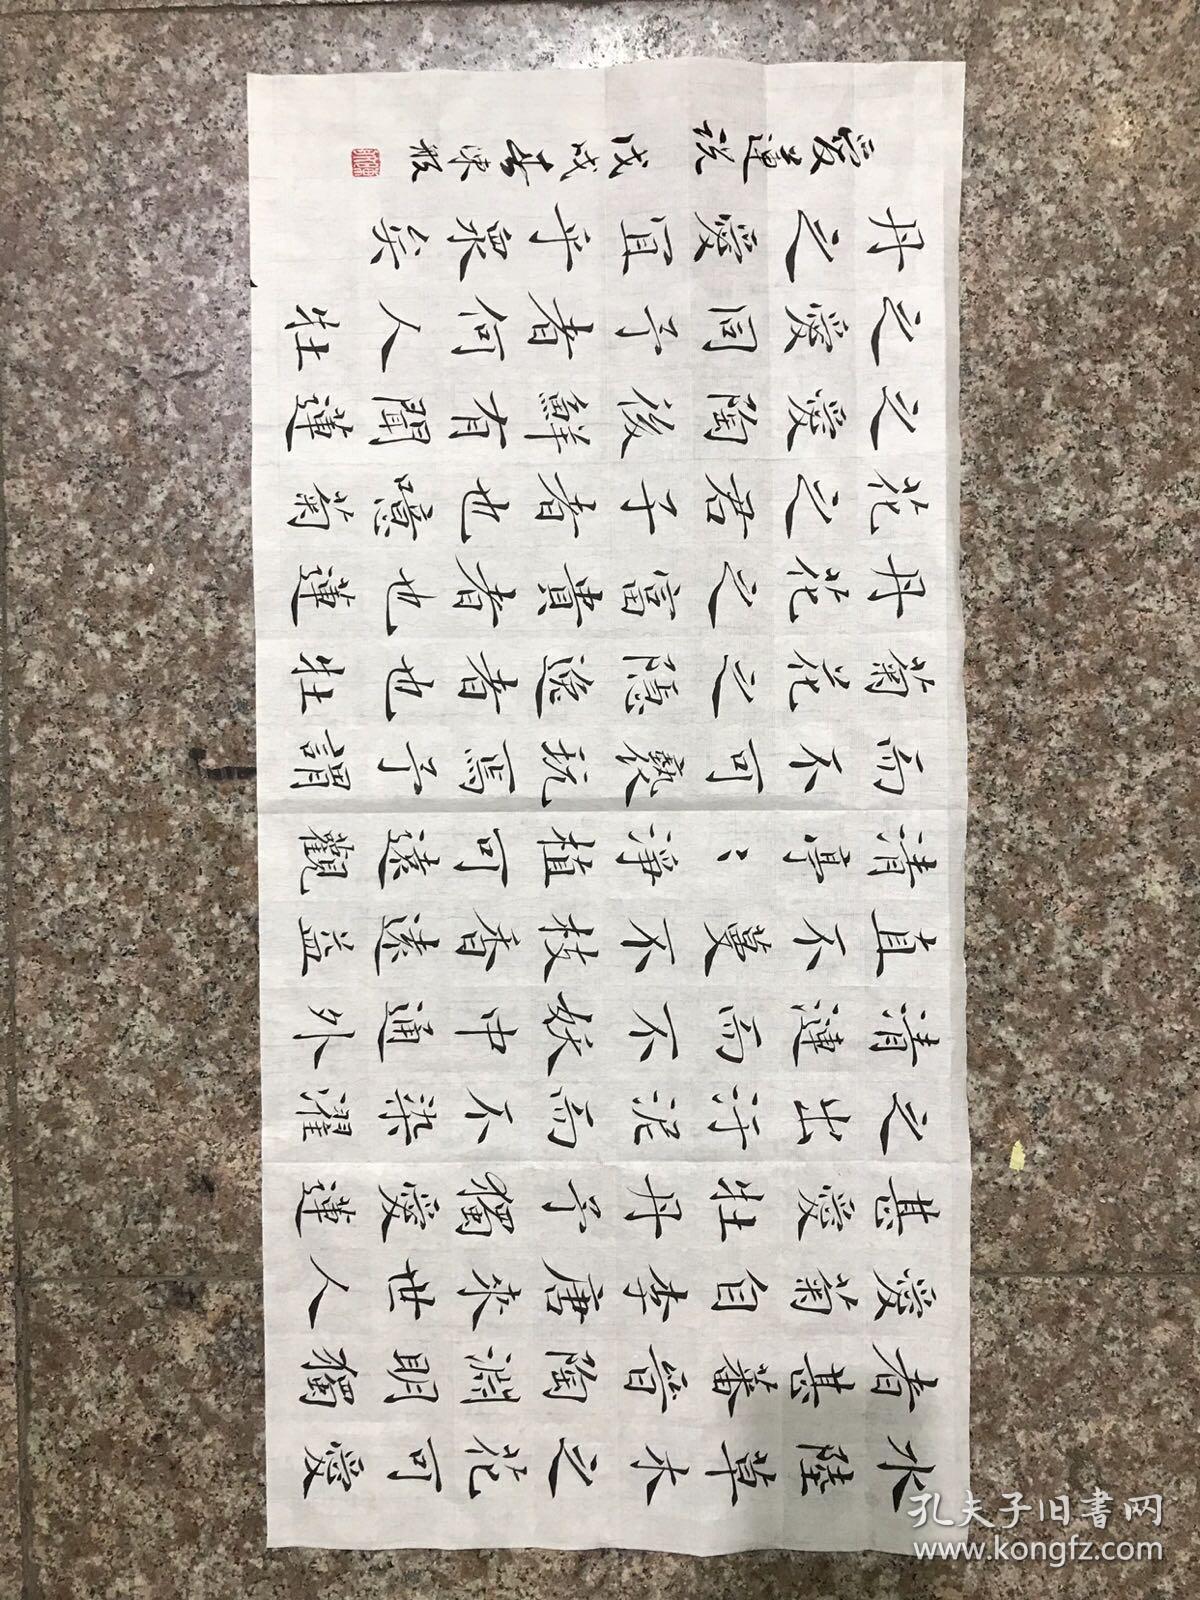 水陸草木之花可愛
者甚蕃晉陶淵明獨
愛菊自李唐來世人
甚愛牡丹予獨愛蓮
之出汙泥而不染濯
清漣而不妖中通外
直不蔓不枝香遠益
清亭〻淨植可遠觀
而不可褻玩焉予謂
菊花之隱逸者也牡
丹花之富貴者也蓮
花之君子者也噫菊
之愛陶後鮮有聞蓮
之愛同予者何人牡
丹之愛宜乎眾矣
愛蓮说 戊戌春陳
孔夫子旧书网
www.kongfz.com